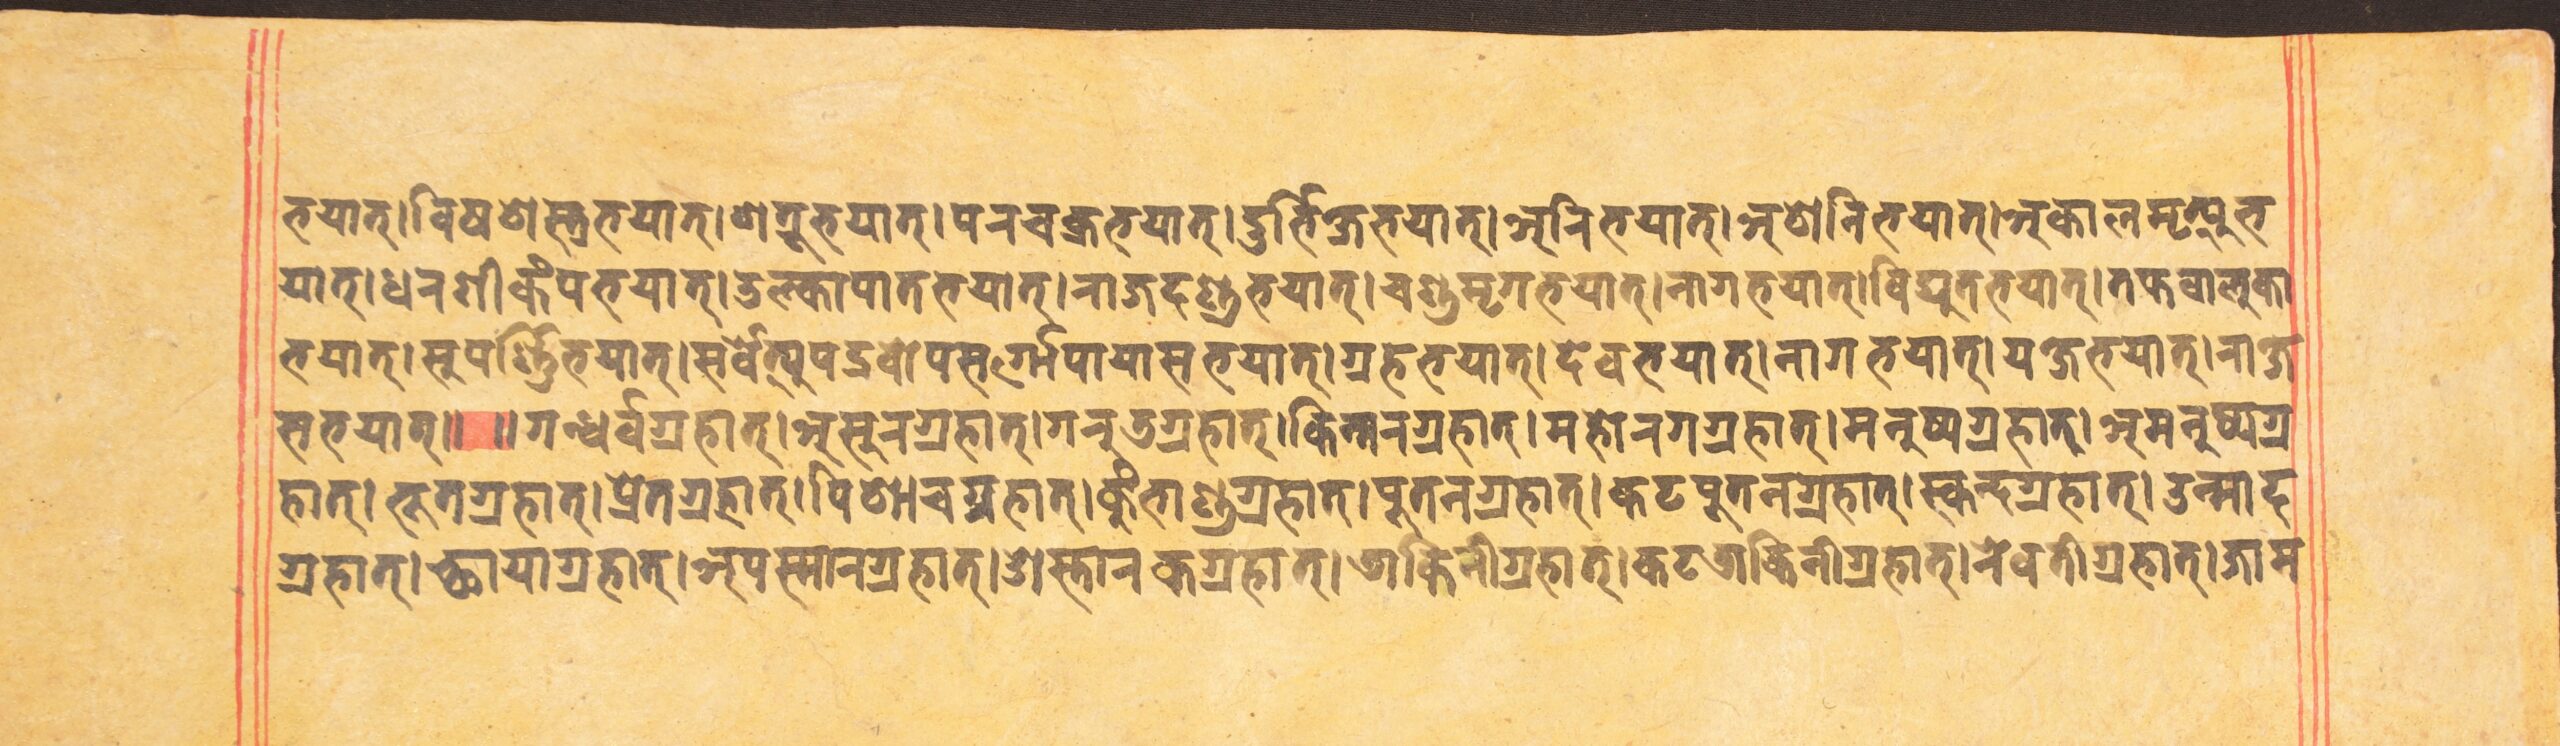 भयात्।विषशस्त्रभयात्।शत्रुभयात्।परचक्रभयात्।दुर्भिक्षभयात्।अरिभयात्।अशनिभयात्।अकालमृत्युभ
यात्।धरणीकंपभयात्।उल्कापातभयात्।राजदण्डभयात्।चण्डमृगभयात्।नागभयात्।विद्युतभयात्।तप्तवालुका
भयात्।सुपर्ण्णिभयात्।सर्वेत्युपद्रवोपसर्गोपायासभयात्।ग्रहभयात्।देवभयात्।नागभयात्।यक्षभयात्।राक्ष
सभयात्॥ ॥गन्धर्वग्रहात्।असुरग्रहात्।गरुडग्रहात्।किन्नरग्रहात्।महोरगग्रहात्।मनुष्यग्रहात्।अमनुष्यग्र
हात्।भूतग्रहात्।प्रेतग्रहात्।पिशाचग्रहात्।कुंभाण्डग्रहात्।पूतनग्रहात्।कटपूतनग्रहात्।स्कन्दग्रहात्।उन्माद
ग्रहात्।च्छायाग्रहात्।अपस्मारग्रहात्।ओस्तारकग्रहात्।डाकिनीग्रहात्।कटडाकिनीग्रहात्।रेवतीग्रहात्।जाम